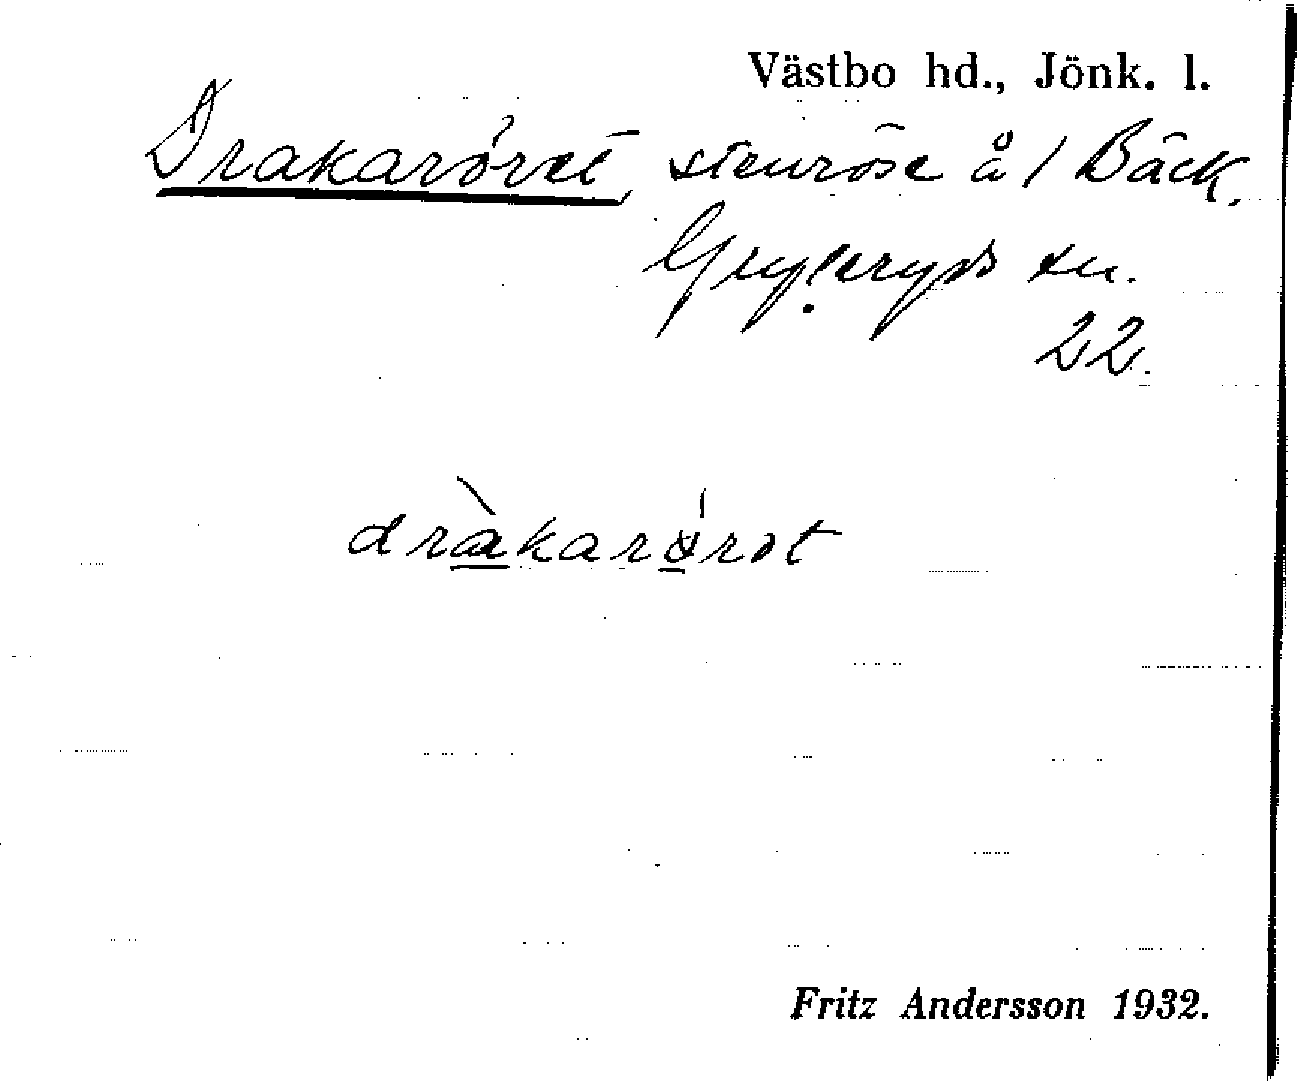 Västbo hd., Jönk. l.
Drakaröret, stenröse å / Bäck,
Gryteryds sn.
22.
dràkarørət
Fritz Andersson 1932.